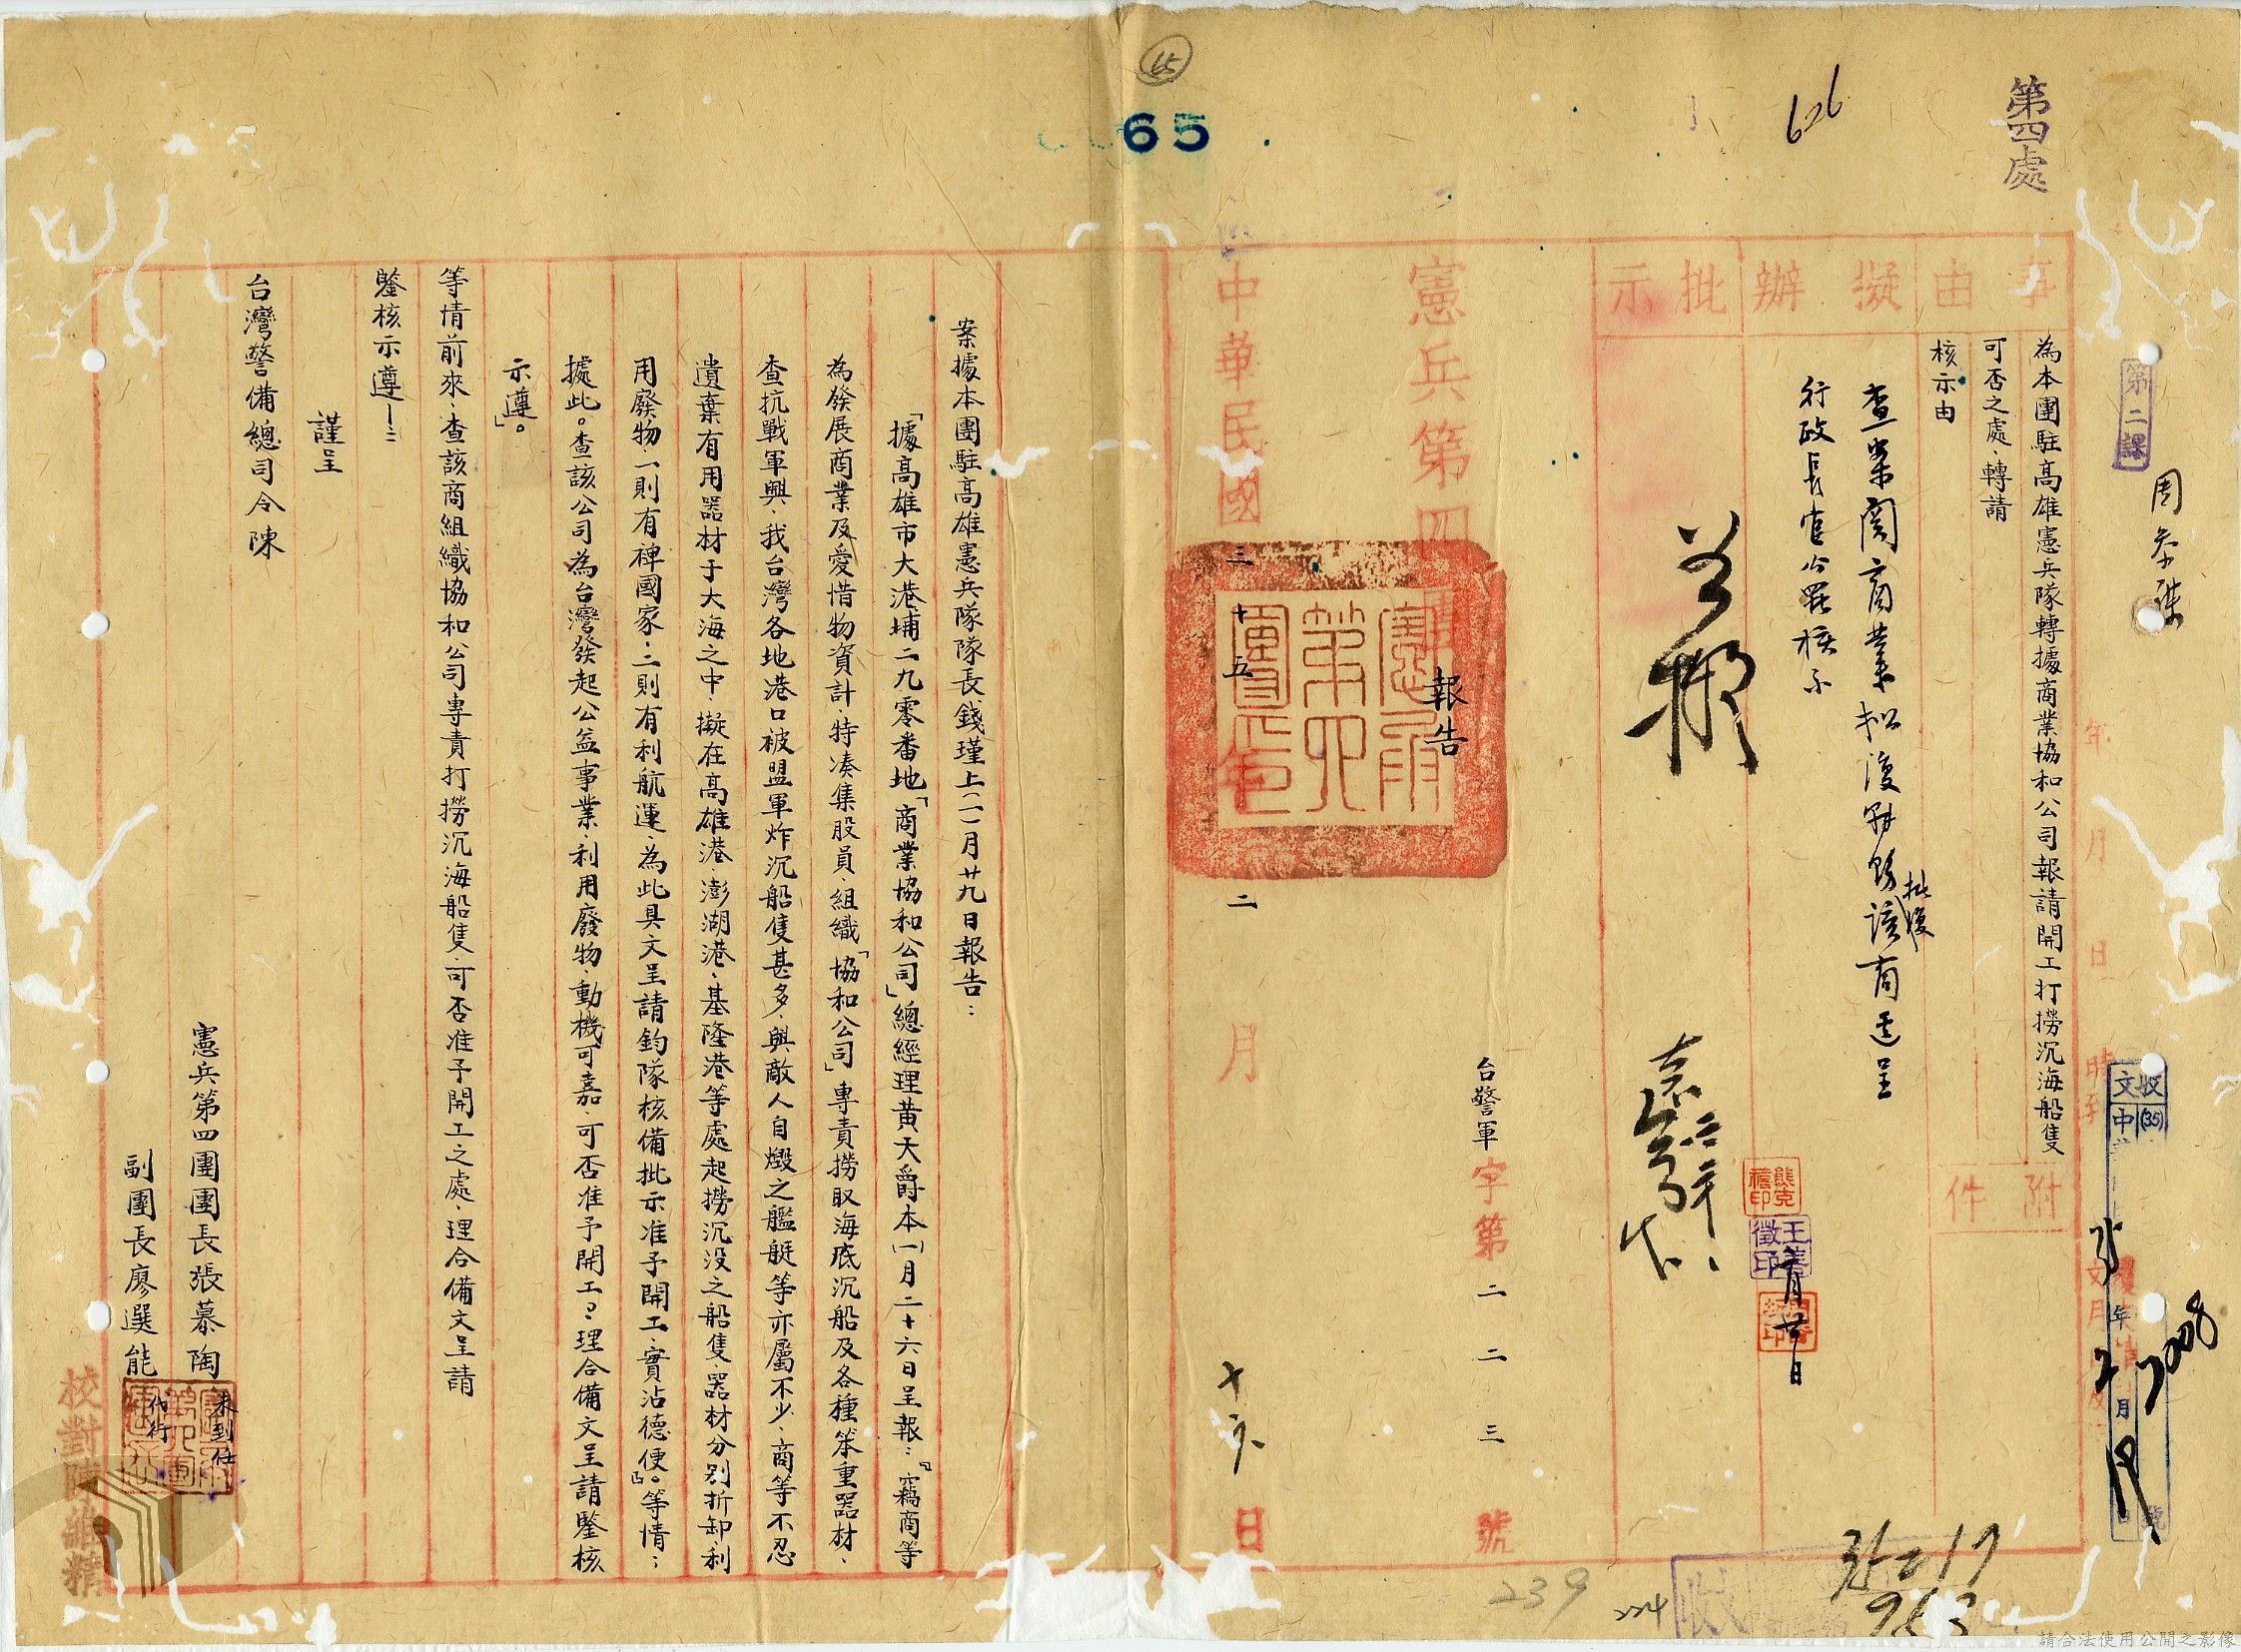 65
65
626
第四處
第二課
事由
為本團駐高雄憲兵隊轉據商業協和公司報請開工打撈沉海船隻
可否之處、轉請
核示由
附件
擬辦
行政長官公署核示
批示
憲兵第四團
報告
台警軍字第二二三號
中華民國三十五年二月十六日
案據本團駐高雄憲兵隊隊長錢瑾上(一)月廿九日報告:
「據高雄市大港埔二九零番地「商業協和公司」總經理黃天爵本(一)月二十六日呈報:『竊商等
為發展商業及愛惜物資計、特湊集股員、組織「協和公司」專責撈取海底沉船及各種笨重器材、
查抗戰軍興、我台灣各地港口被盟軍炸沉船隻甚多、與敵人自燬之艦艇等亦屬不少、商等不忍
遺棄有用器材于大海之中、擬在高雄港、澎湖港、基隆港等處起撈沉沒之船隻、器材分別折卸、利
用廢物、一則有裨國家、二則有利航運、為此具文呈請鈞隊核備批示准予開工、實沾德便。』等情;
據此。查該公司為台灣發起公益事業、利用廢物、動機可嘉、可否准予開工?理合備文呈請鑒核
示遵」。
等情前來、查該商組織協和公司專責打撈沉海船隻、可否准予開工之處、理合備文呈請
鑒核示遵!
謹呈
台灣警備總司令陳
憲兵第四團團長張慕陶
未到任
副團長廖選能
代行
校對陳維精
收文
(35)
中
年
月
日
7008
239
224
請合法使用公開之影像